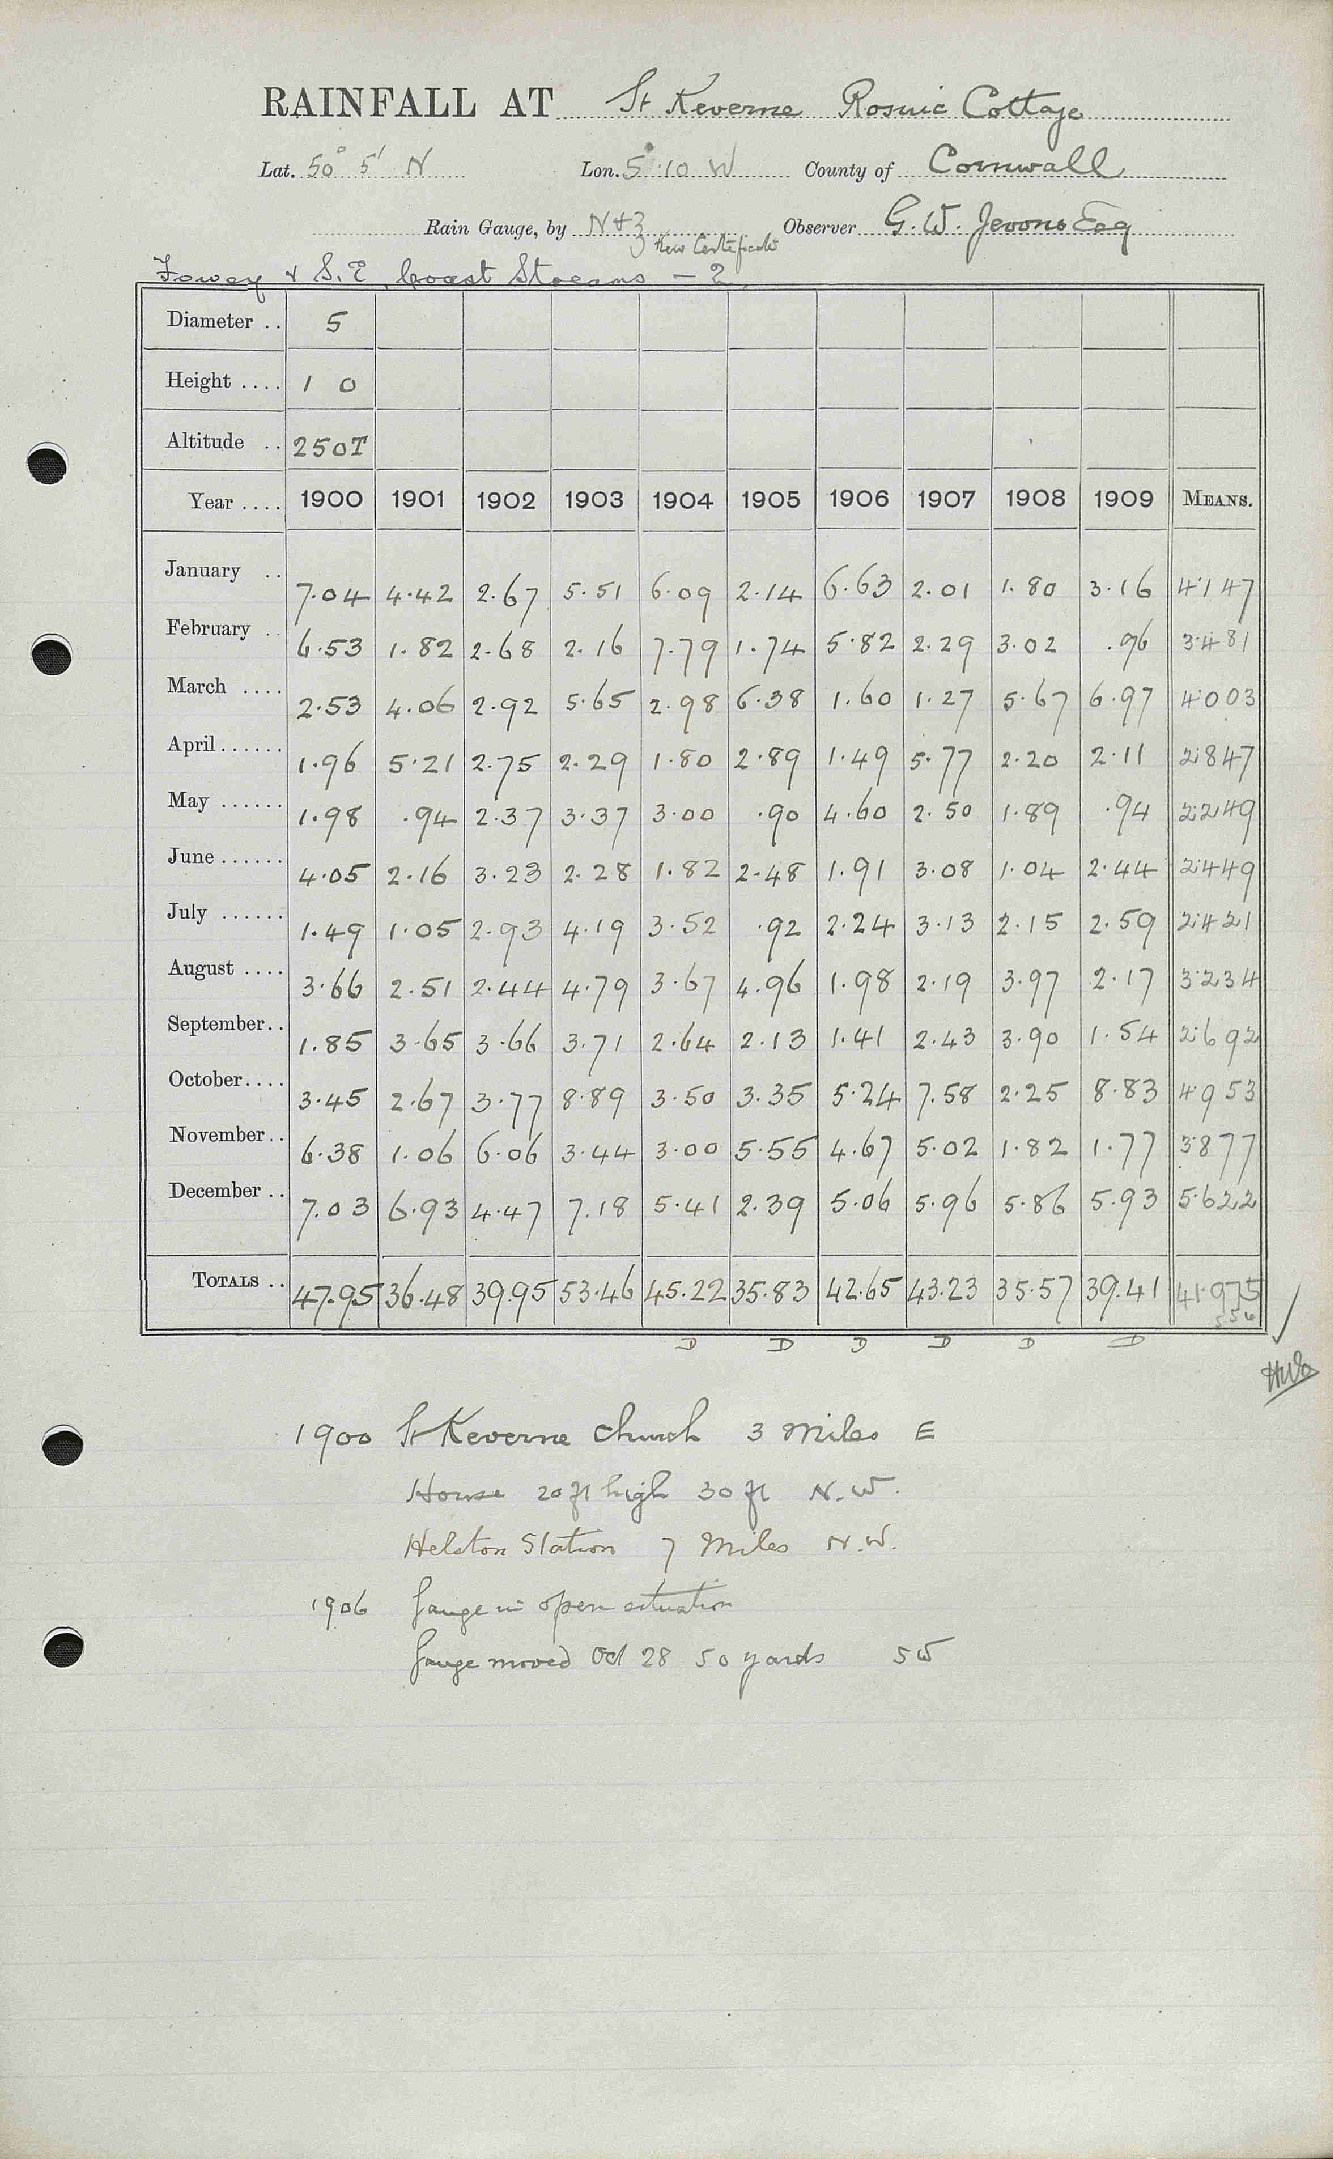 RAINFALL AT St Keverne Rosuic Cottage
Lat. 50° 5' N Lon. 5° 10 W County of Cornwall
Rain Gauge, by N & Z Observer G. W. Jevons Esq
Kew Certificate
Fowey & S.E. Coast Streams — 2
Diameter .. 5
Height .... 1 0
Altitude .. 250T
Year .... 1900 1901 1902 1903 1904 1905 1906 1907 1908 1909 MEANS.
January .. 7.04 4.42 2.67 5.51 6.09 2.14 6.63 2.01 1.80 3.16 4.147
February .. 6.53 1.82 2.68 2.16 7.79 1.74 5.82 2.29 3.02 .96 3.481
March .... 2.53 4.06 2.92 5.65 2.98 6.38 1.60 1.27 5.67 6.97 4.003
April ...... 1.96 5.21 2.75 2.29 1.80 2.89 1.49 5.77 2.20 2.11 2.847
May ...... 1.98 .94 2.37 3.37 3.00 .90 4.60 2.50 1.89 .94 2.249
June ...... 4.05 2.16 3.23 2.28 1.82 2.48 1.91 3.08 1.04 2.44 2.449
July ...... 1.49 1.05 2.93 4.19 3.52 .92 2.24 3.13 2.15 2.59 2.421
August .... 3.66 2.51 2.44 4.79 3.67 4.96 1.98 2.19 3.97 2.17 3.234
September .. 1.85 3.65 3.66 3.71 2.64 2.13 1.41 2.43 3.90 1.54 2.692
October .... 3.45 2.67 3.77 8.89 3.50 3.35 5.24 7.58 2.25 8.83 4.953
November .. 6.38 1.06 6.06 3.44 3.00 5.55 4.67 5.02 1.82 1.77 3.877
December .. 7.03 6.93 4.47 7.18 5.41 2.39 5.06 5.96 5.86 5.93 5.622
TOTALS .. 47.95 36.48 39.95 53.46 45.22 35.83 42.65 43.23 35.57 39.41 41.975
D D D D D D
1900 St Keverne Church 3 Miles E
House 20 ft high 30 ft N.W.
Helston Station 7 Miles N.W.
1906 Gauge in open situation
Gauge moved Oct 28 50 yards SW